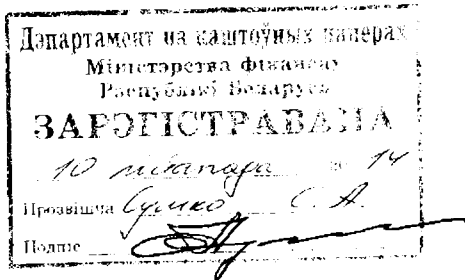 Дэпартамент па каштоўных паперах
Міністэрства фінансаў
Рэспублікі Беларусь
ЗАРЭГІСТРАВАНА
10 лістапада 20 14
Прозвішча Сушко С. А.
Подпіс